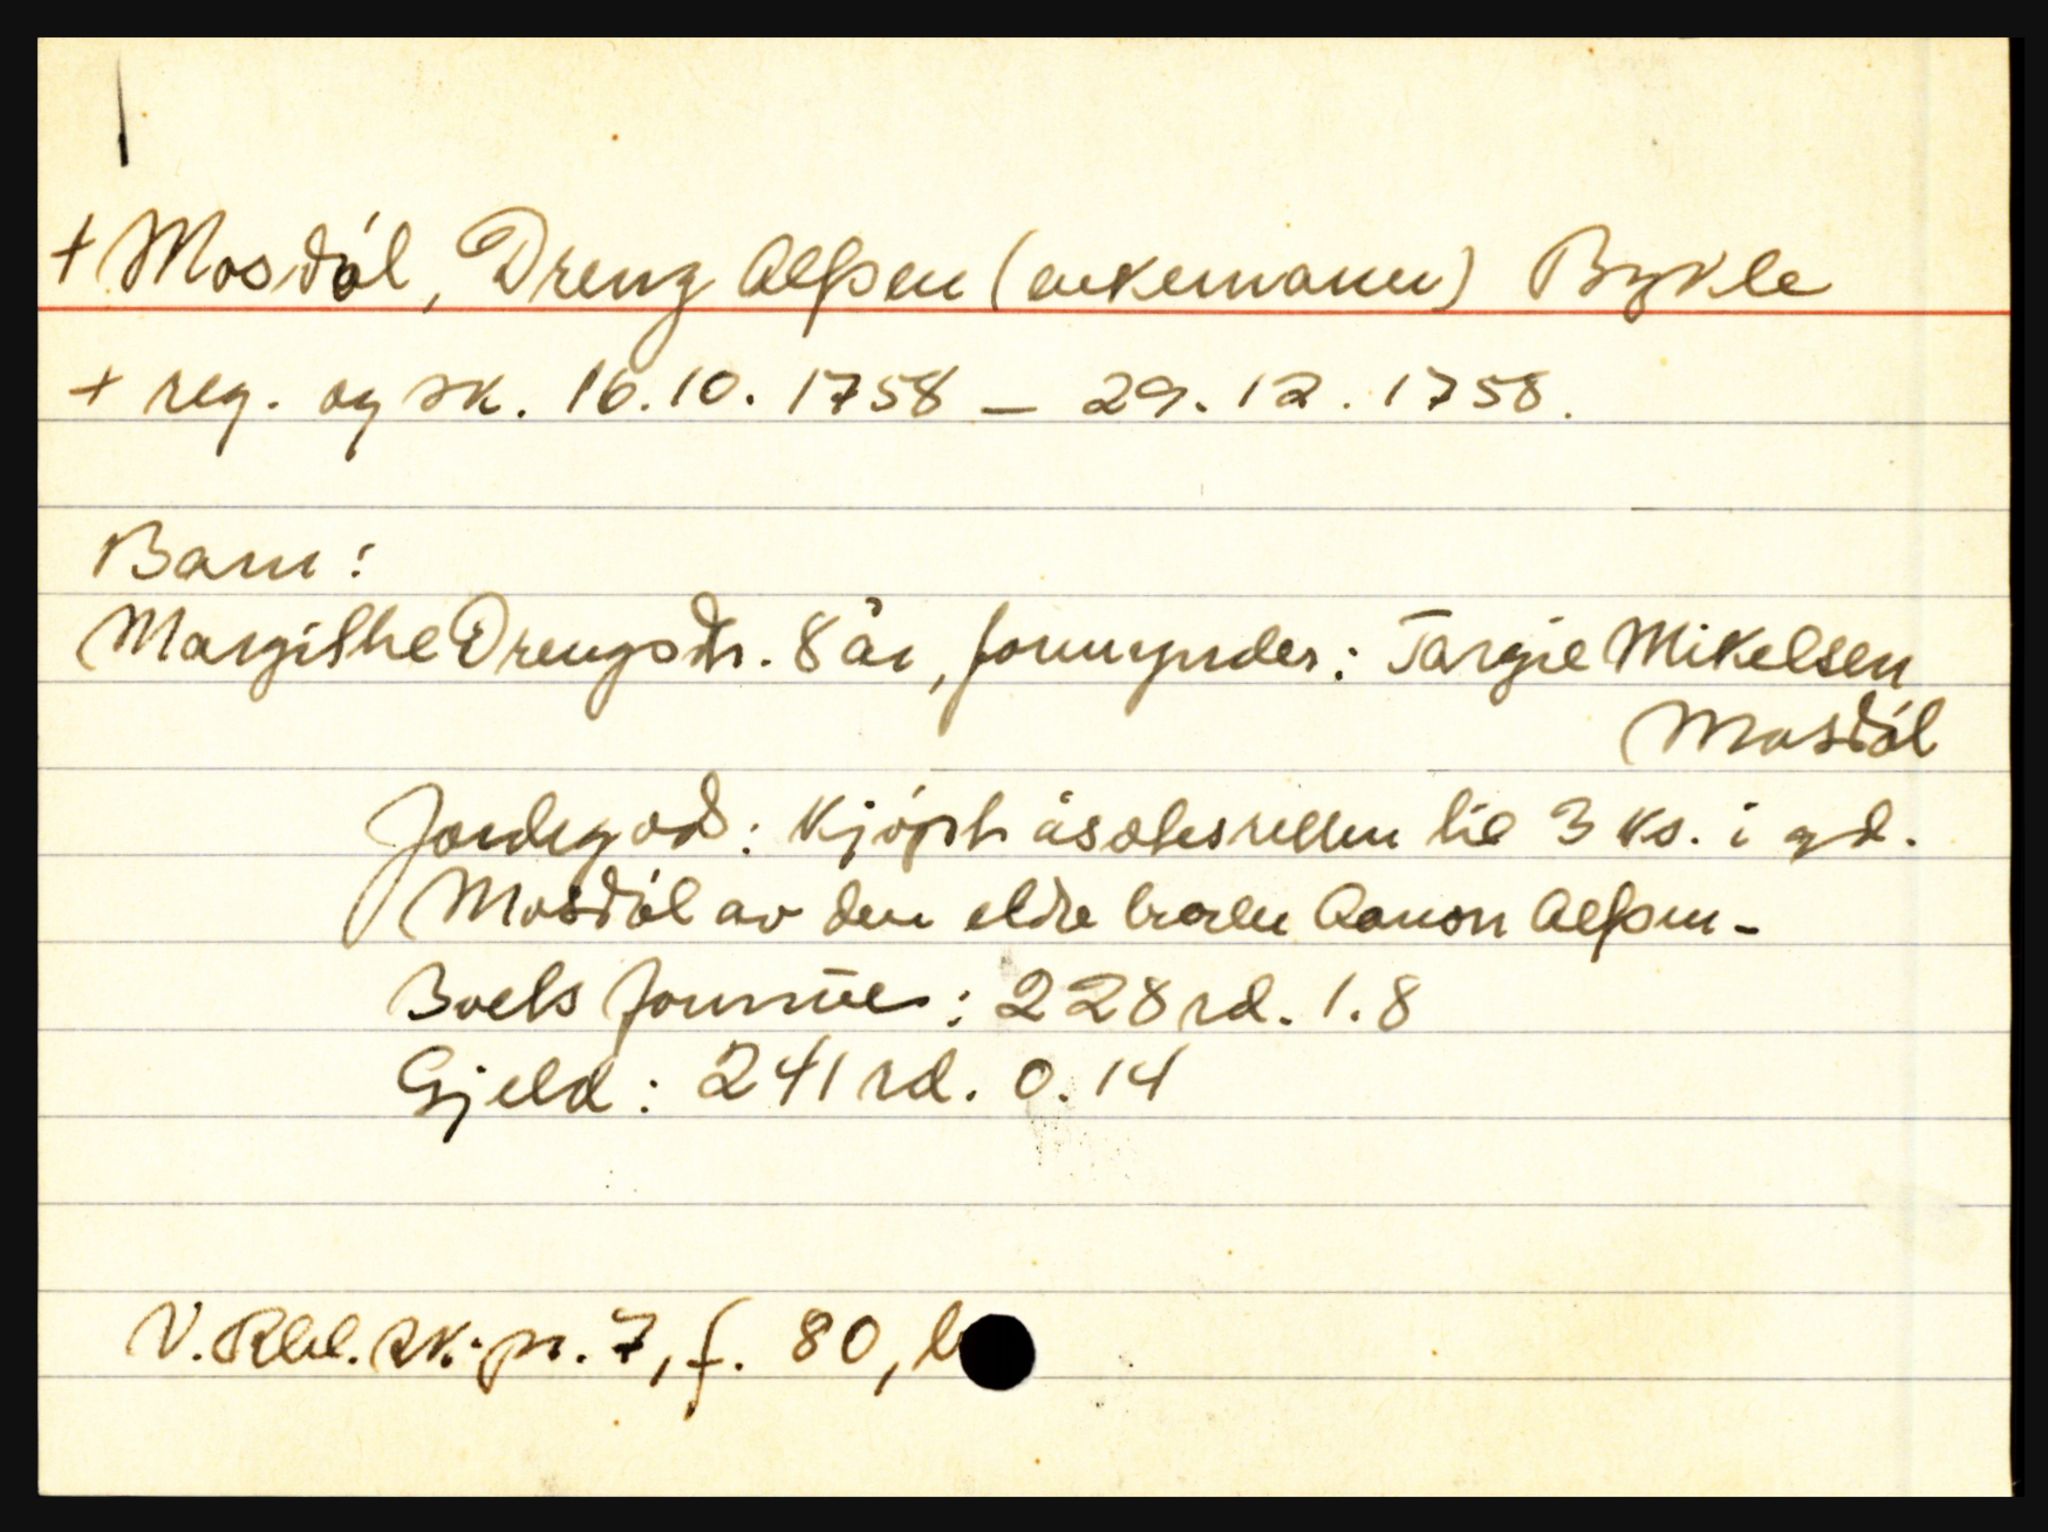 + Mosdøl, Dreng Alfsen (enkemann) Bykle
+ reg. og sk. 16.10. 1758 – 29.12. 1758.
Barn:
Margithe Drengsdtr. 8 år, formynder: Targie Mikelsen
Mosdøl
Jordegods: Kjøpt åsætesretten til 3 ks. i gd.
Mosdøl av den eldre broder Aanon Alfsen -
Boets formue: 228 rd. 1. 8
Gjeld: 241 rd. 0. 14
V. Rbl. sk. pr. 7, f. 80, b